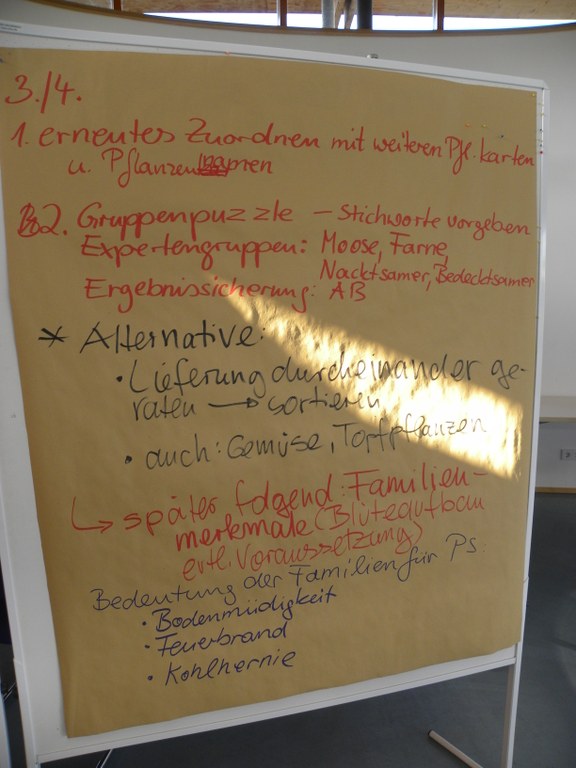 3./4.
1. erneutes Zuordnen mit weiteren Pfl. karten
u. Pflanzen
2. Gruppenpuzzle – Stichworte vorgeben
Expertengruppen: Moose, Farne,
Nacktsamer, Bedecktsamer
Ergebnissicherung: AB
* Alternative:
• Lieferung durcheinander ge-
raten → sortieren
• auch: Gemüse, Topfpflanzen
↳ später folgend: Familien-
merkmale (Blütenaufbau
evtl. Voraussetzung)
Bedeutung der Familien für Ps:
• Bodenmüdigkeit
• Feuerbrand
• Kohlhernie